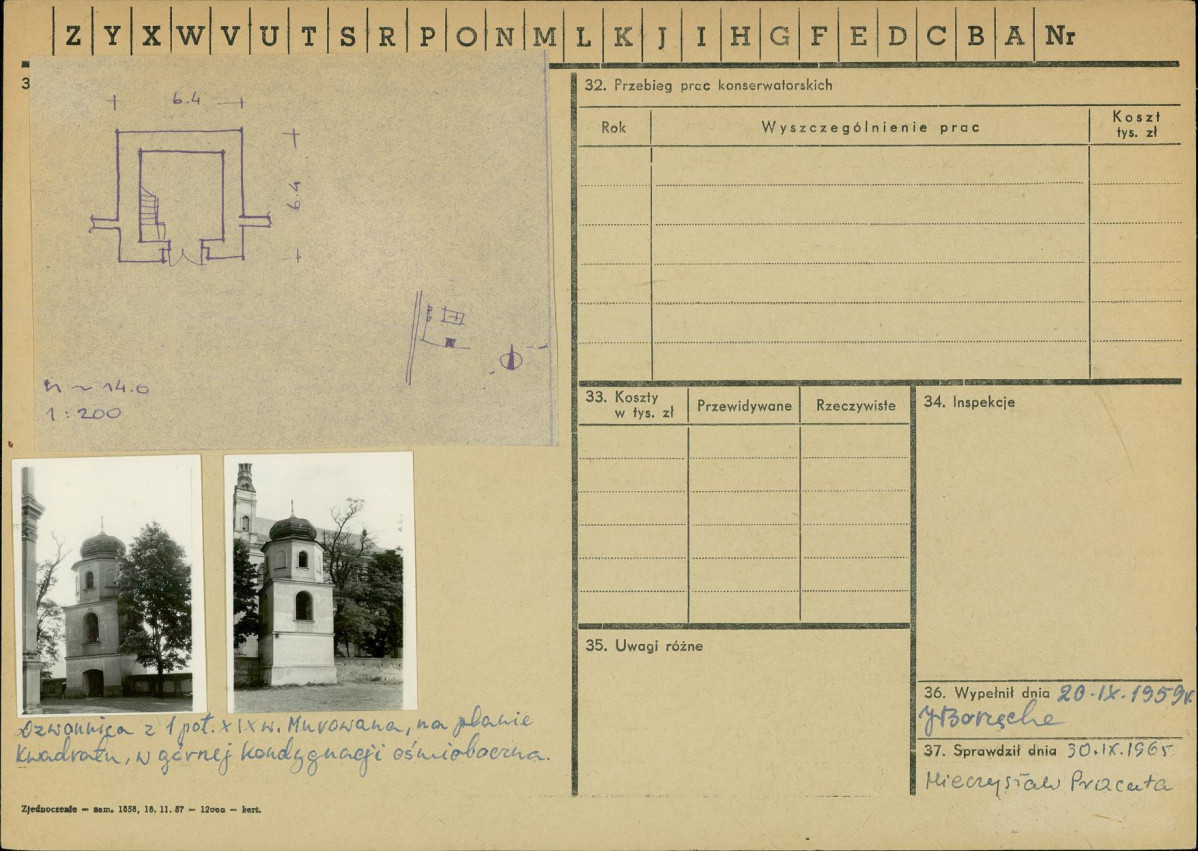 Z Y X W V U T S R P O N M L K J I H G F E D C B A Nr
3
6.4
6.4
h ~ 14.0
1:200
Dzwonnica z 1 poł. XIX w. Murowana, na planie
kwadratu, w górnej kondygnacji ośmioboczna.
Zjednoczenie — zam. 1858, 16. 11. 57 — 12000 — kart.
32. Przebieg prac konserwatorskich
Rok
Wyszczególnienie prac
Koszt
tys. zł
33. Koszty
w tys. zł
Przewidywane
Rzeczywiste
34. Inspekcje
35. Uwagi różne
36. Wypełnił dnia 20.IX.1959r.
37. Sprawdził dnia 30.IX.1965
Mieczysław